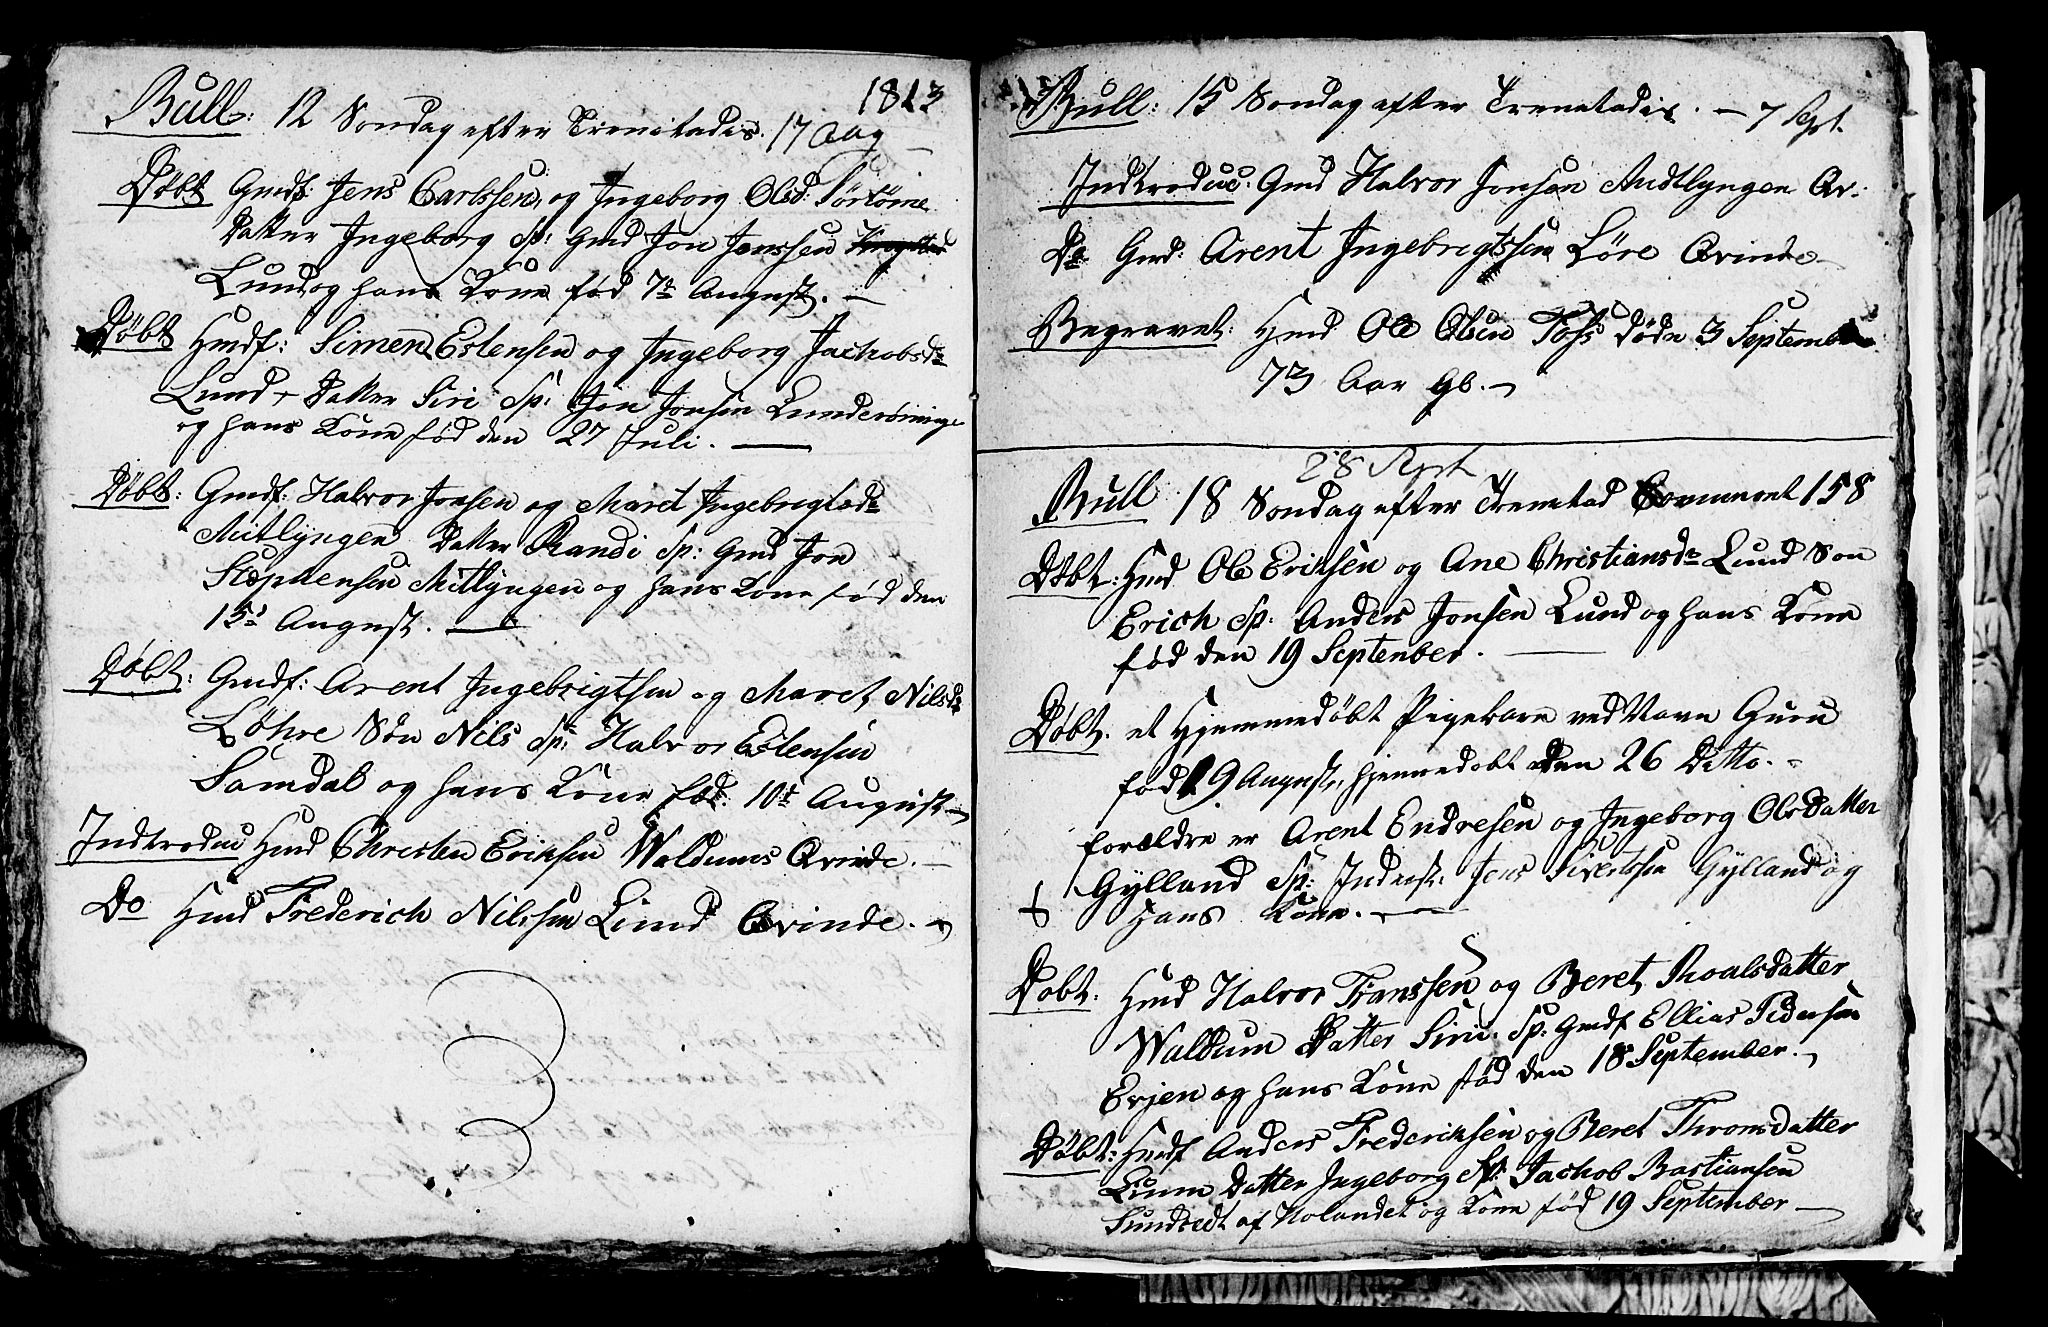 1813
Bull: 12 Sondag efter Trenitadis. 17 Aug
Døbt Gmdf: Jens Carlssen, og Ingeborg Olsd:
Datter Ingeborg Sp: Gmd Jon Jonssen
Lund og hans Kone fød 7de August. —
Døbt Hmdf: Simen Estensen og Ingeborg Jachobsdr
Lund — Datter Siri Sp: Jon Jonsen
og hans Kone fød den 27 Juli. —
Døbt: Gmdf: Halvor Jonsen og Maret Ingebrigtsdr
Mitlyngen Datter Randi Sp: Gmd Jon
Stephensen Mitlyngen og hans Kone fød den
15de August. —
Døbt: Gmdf: Arent Ingebrigtsen og Maret Nilsdr
Løhre Søn Nils Sp: Halvor Estensen
Samdal og hans Kone fød: 10de August —
Indtroduc Hmd Christen Eriksen Waldums Qvinde. —
Do Hmd Frederich Nilssen Lund Qvinde. —
Bull: 15 Sondag efter Trenetadis. — 7 Sept.
Indtroduc: Gmd Halvor Jonsen Midtlyngen Qv:
Do Gmd: Arent Ingebrigtssen Løre Qvinde —
Begravet: Hmd Ole Olsen døde 3 September
73 Aar Gl. —
28 Sept
Bull 18 Sondag efter Trenetad Communt 158
Døbt: Hmd Ole Eriksen og Ane Christiansdr Lund Søn
Erich Sp: Anders Jonsen Lund og hans Kone
fød den 19 September. —
Døbt. et Hjemmedøbt Pigebarn ved Navn Guru
fød 19 August, hjemmedobt den 26 Ditto. —
forældre er Arent Endresen og Ingeborg Olsdatter
Gylland Sp: Inderst: Jens Sivertssen Gylland og
hans Kone. —
Døbt. Hmd Halvor Franssen og Beret Roalsdatter
Waldum Datter Sirie Sp: Gmdf Ellias Pedersen
Evjen og hans Kone fød den 18 September. —
Døbt: Hmdf Anders Frederiksen og Beret Thronsdatter
Datter Ingeborg Sp: Jachob Bastiansen
Sundsedt af Holandet og Kone fød 19 September —